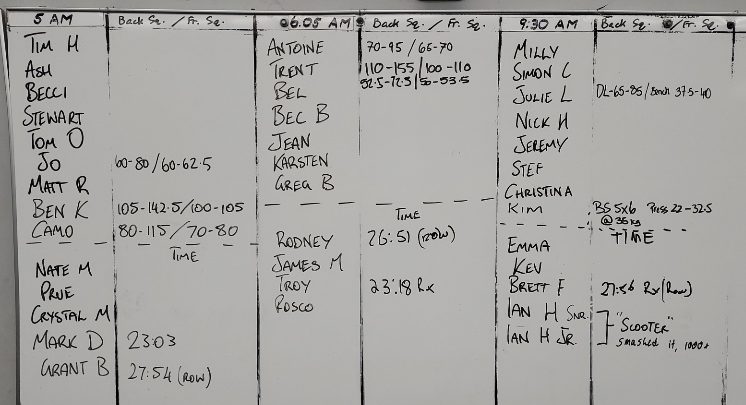 5 AM Back Sq. / Fr. Sq.
TIM H
ASH
BECCI
STEWART
TOM O
JO 60-80/60-62.5
MATT R
BEN K 105-142.5/100-105
CAMO 80-115/70-80
TIME
NATE M
PRUE
CRYSTAL M
MARK D 23:03
GRANT B 27:54 (ROW)
06.05 AM Back Sq. / Fr. Sq.
ANTOINE 70-95 / 65-70
TRENT 110-155/100-110
BEL 52.5-72.5/50-53.5
BEC B
JEAN
KARSTEN
GREG B
TIME
RODNEY 26:51 (ROW)
JAMES M
TROY 23:18 Rx
ROSCO
9:30 AM Back Sq. / Fr. Sq.
MILLY
SIMON C
JULIE L DL-65-85/Bench 37.5-40
NICK H
JEREMY
STEF
CHRISTINA
KIM BS 5x6 Press 22-32.5
@ 35kg
TIME
EMMA
KEV
BRETT F 27:56 Rx (Row)
IAN H SNR.
IAN H JR.
"SCOOTER"
smashed it, 1000+